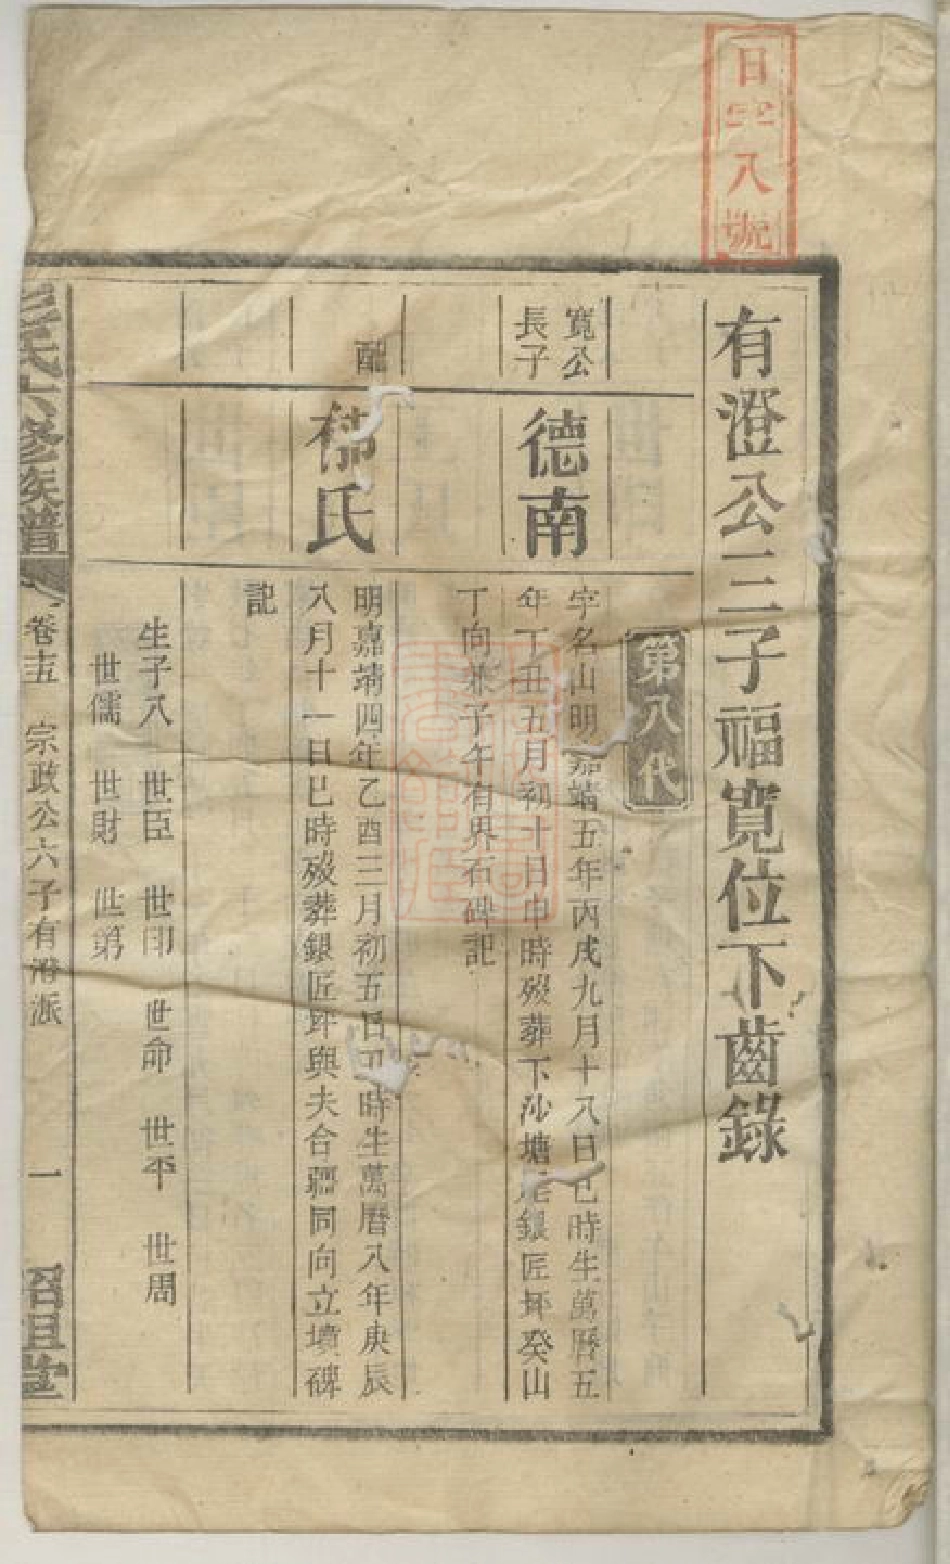 日字八號
有澄公三子福寬位下齒錄
第八代
寬公
長子
德南
字名山明嘉靖五年丙戌九月十八日巳時生萬曆五
年丁丑五月初十日申時歿葬下沙塘尾銀匠坪癸山
丁向兼子午有界石碑記
配
氏
明嘉靖四年乙酉三月初五日丑時生萬曆八年庚辰
八月十一日巳時歿葬銀匠坪與夫合疆同向立墳碑
記
生子八 世臣 世印 世命 世平 世周
世儒 世財 世第
氏六修族譜
卷十五 宗政公六子有澄派
一